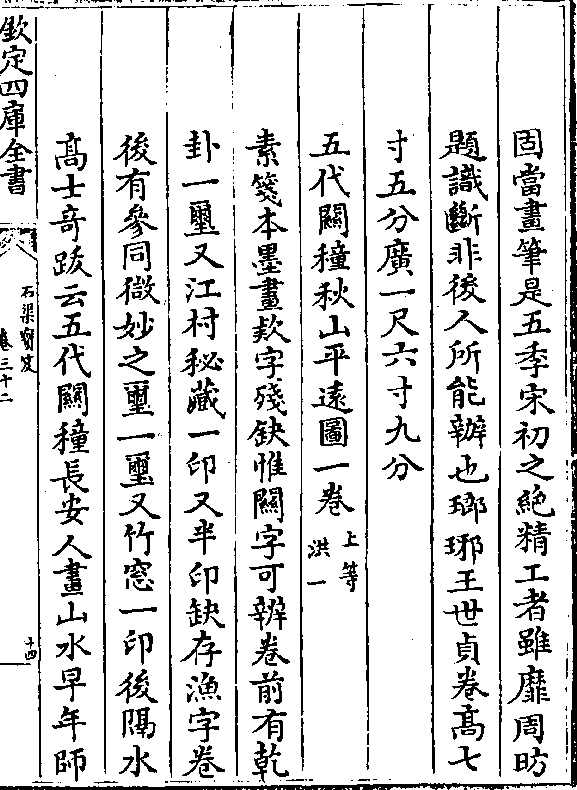 固當畫筆是五季宋初之絶精工者雖靡周昉
題識斷非後人所能辦也瑯琊王世貞卷髙七
寸五分廣一尺六寸九分
五代闗穜秋山平遠圖一卷 上等 洪一
素箋本墨畫欵字殘缺惟闗字可辨卷前有乾
卦一璽又江村秘藏一印又半印缺存漁字卷
後有參同微妙之璽一璽又竹窓一印後隔水
髙士竒跋云五代闗穜長安人畫山水早年師
欽定四庫全書
石渠寶笈
卷三十二
十四